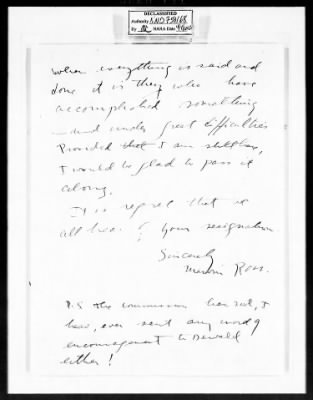 DECLASSIFIED
Authority NND 750168
By NARA Date
when everything is said and
done it is they who have
accomplished something
—and under great difficulties
Provided that I am still here,
I would be glad to pass it
along.
It is regret that
all hear of your resignation.
Sincerely
Marvin Ross.
P.S The commission has not, I
hear, ever sent any word of
encouragement to Dewald
either!